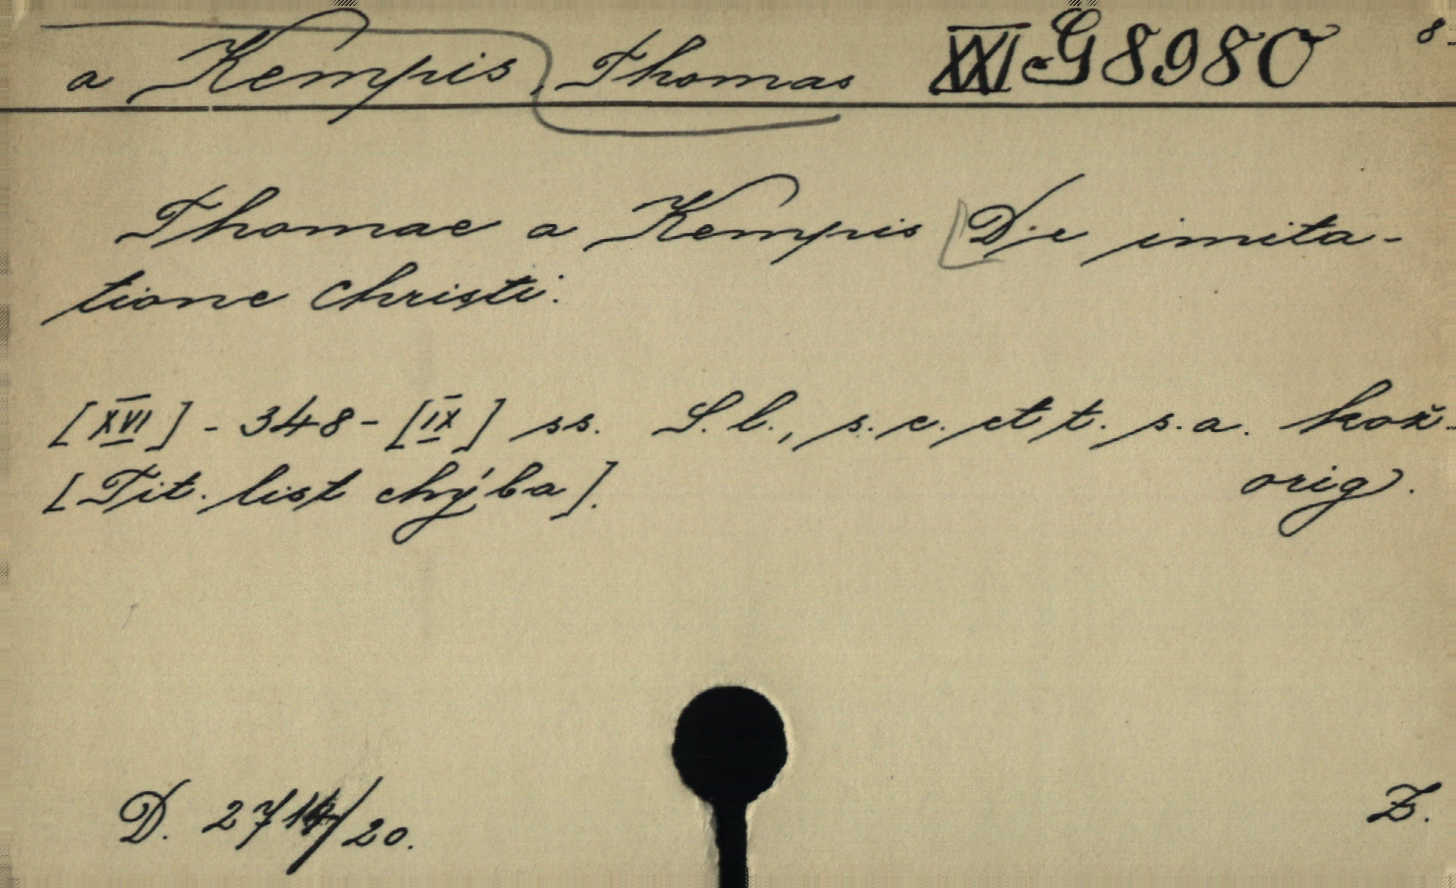 a Kempis, Thomas XXI G 8980 8-
Thomae a Kempis De imita-
tione Christi.
[XVI] - 348 - [IX] ss. S. l., s. c. et t. s. a. kož.
[Tit. list chýba]. orig.
D. /20. Z.